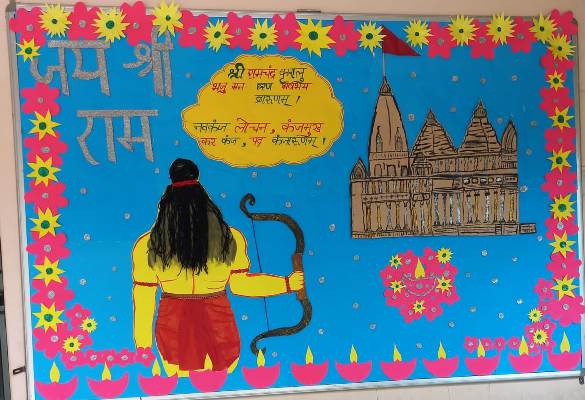 जय श्री
राम
श्री रामचंद्र कृपालु
भजु मन हरण भवभय
दारुणम् !
नवकंज लोचन, कंजमुख
कर कंज, पद कंजारुणम् !